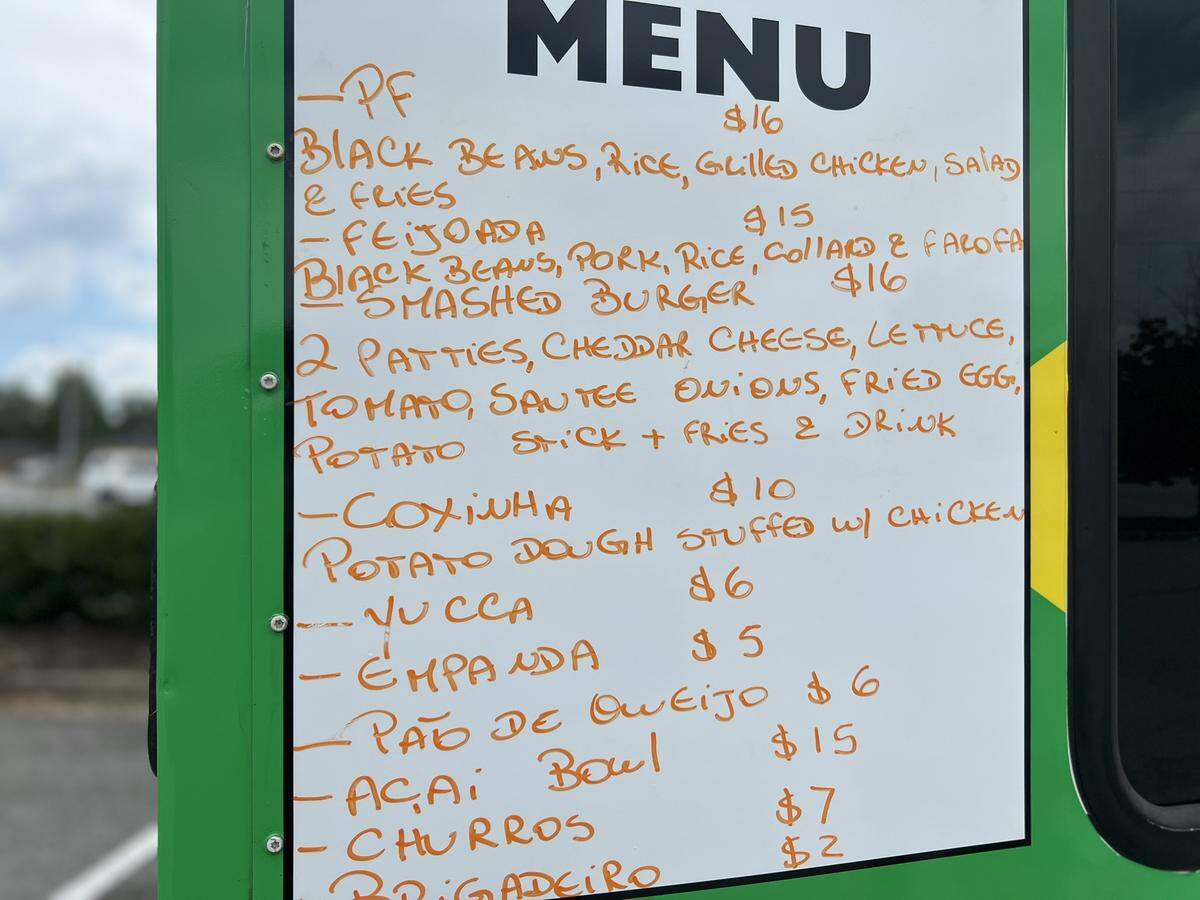 MENU
- PF $16
BLACK BEANS, RICE, GRILLED CHICKEN, SALAD
& FRIES
- FEIJOADA $15
BLACK BEANS, PORK, RICE, COLLARD & FAROFA
- SMASHED BURGER $16
2 PATTIES, CHEDDAR CHEESE, LETTUCE,
TOMATO, SAUTEE ONIONS, FRIED EGG,
POTATO STICK + FRIES & DRINK
- COXINHA $10
POTATO DOUGH STUFFED W/ CHICKEN
- YUCCA $6
- EMPANDA $5
- PÃO DE QUEIJO $6
- AÇAI BOWL $15
- CHURROS $7
- BRIGADEIRO $2